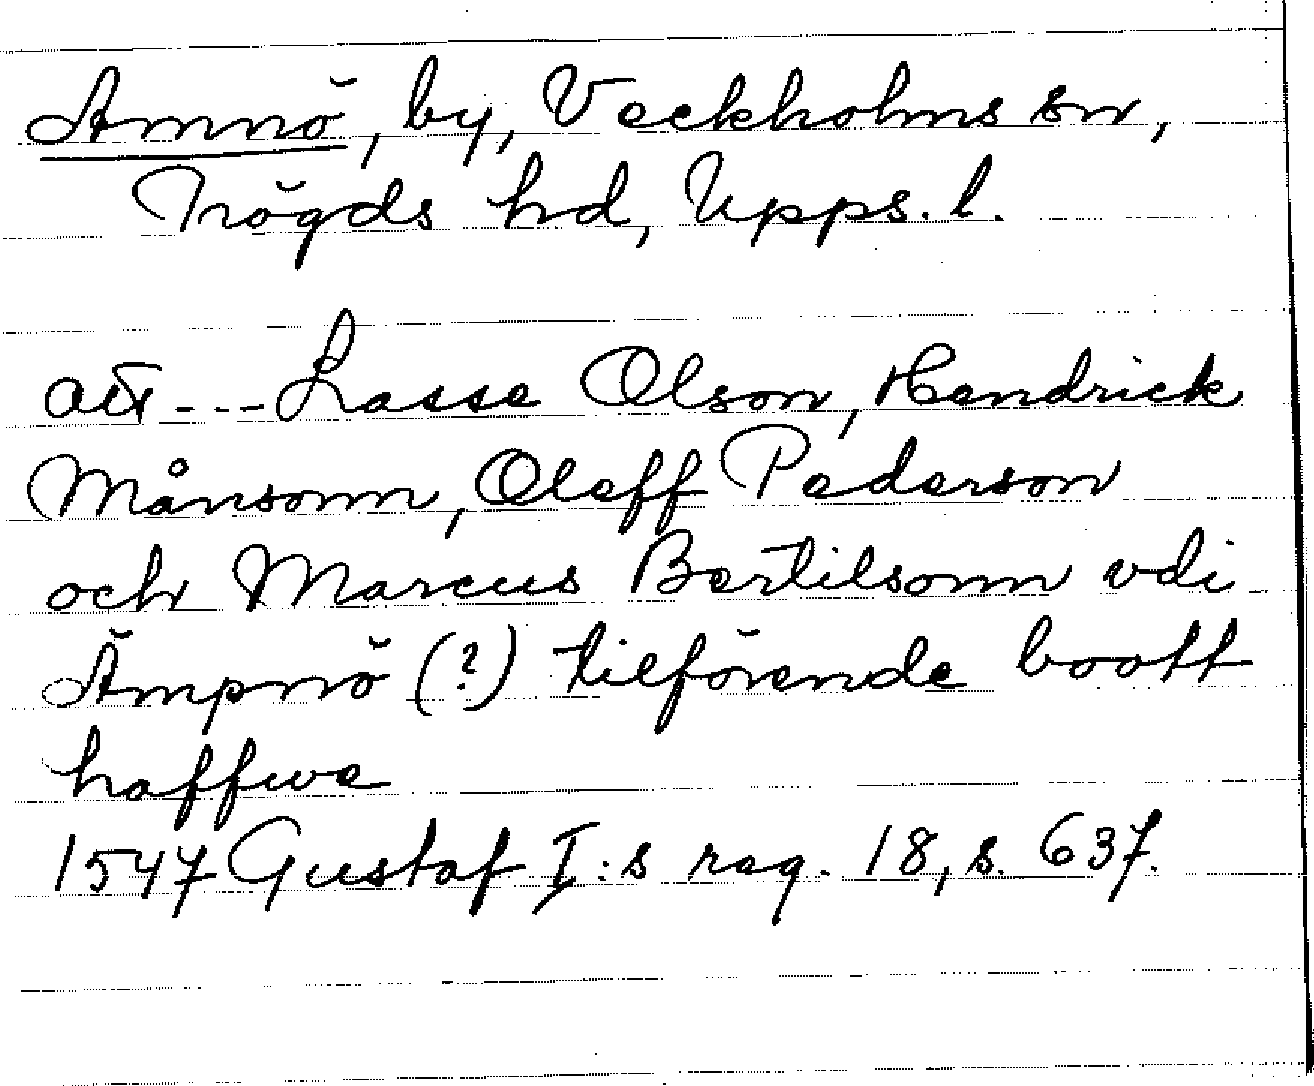 Amnö, by, Veckholms sn,
Trögds hd, Upps. l.
att --- Lasse Olson, Hendrick
Månsonn, Oleff Pederson
och Marcus Bertilsonn vdi
Ämpnö (?) tilförende boott
haffwe
1547 Gustaf I:s reg. 18, s. 637.